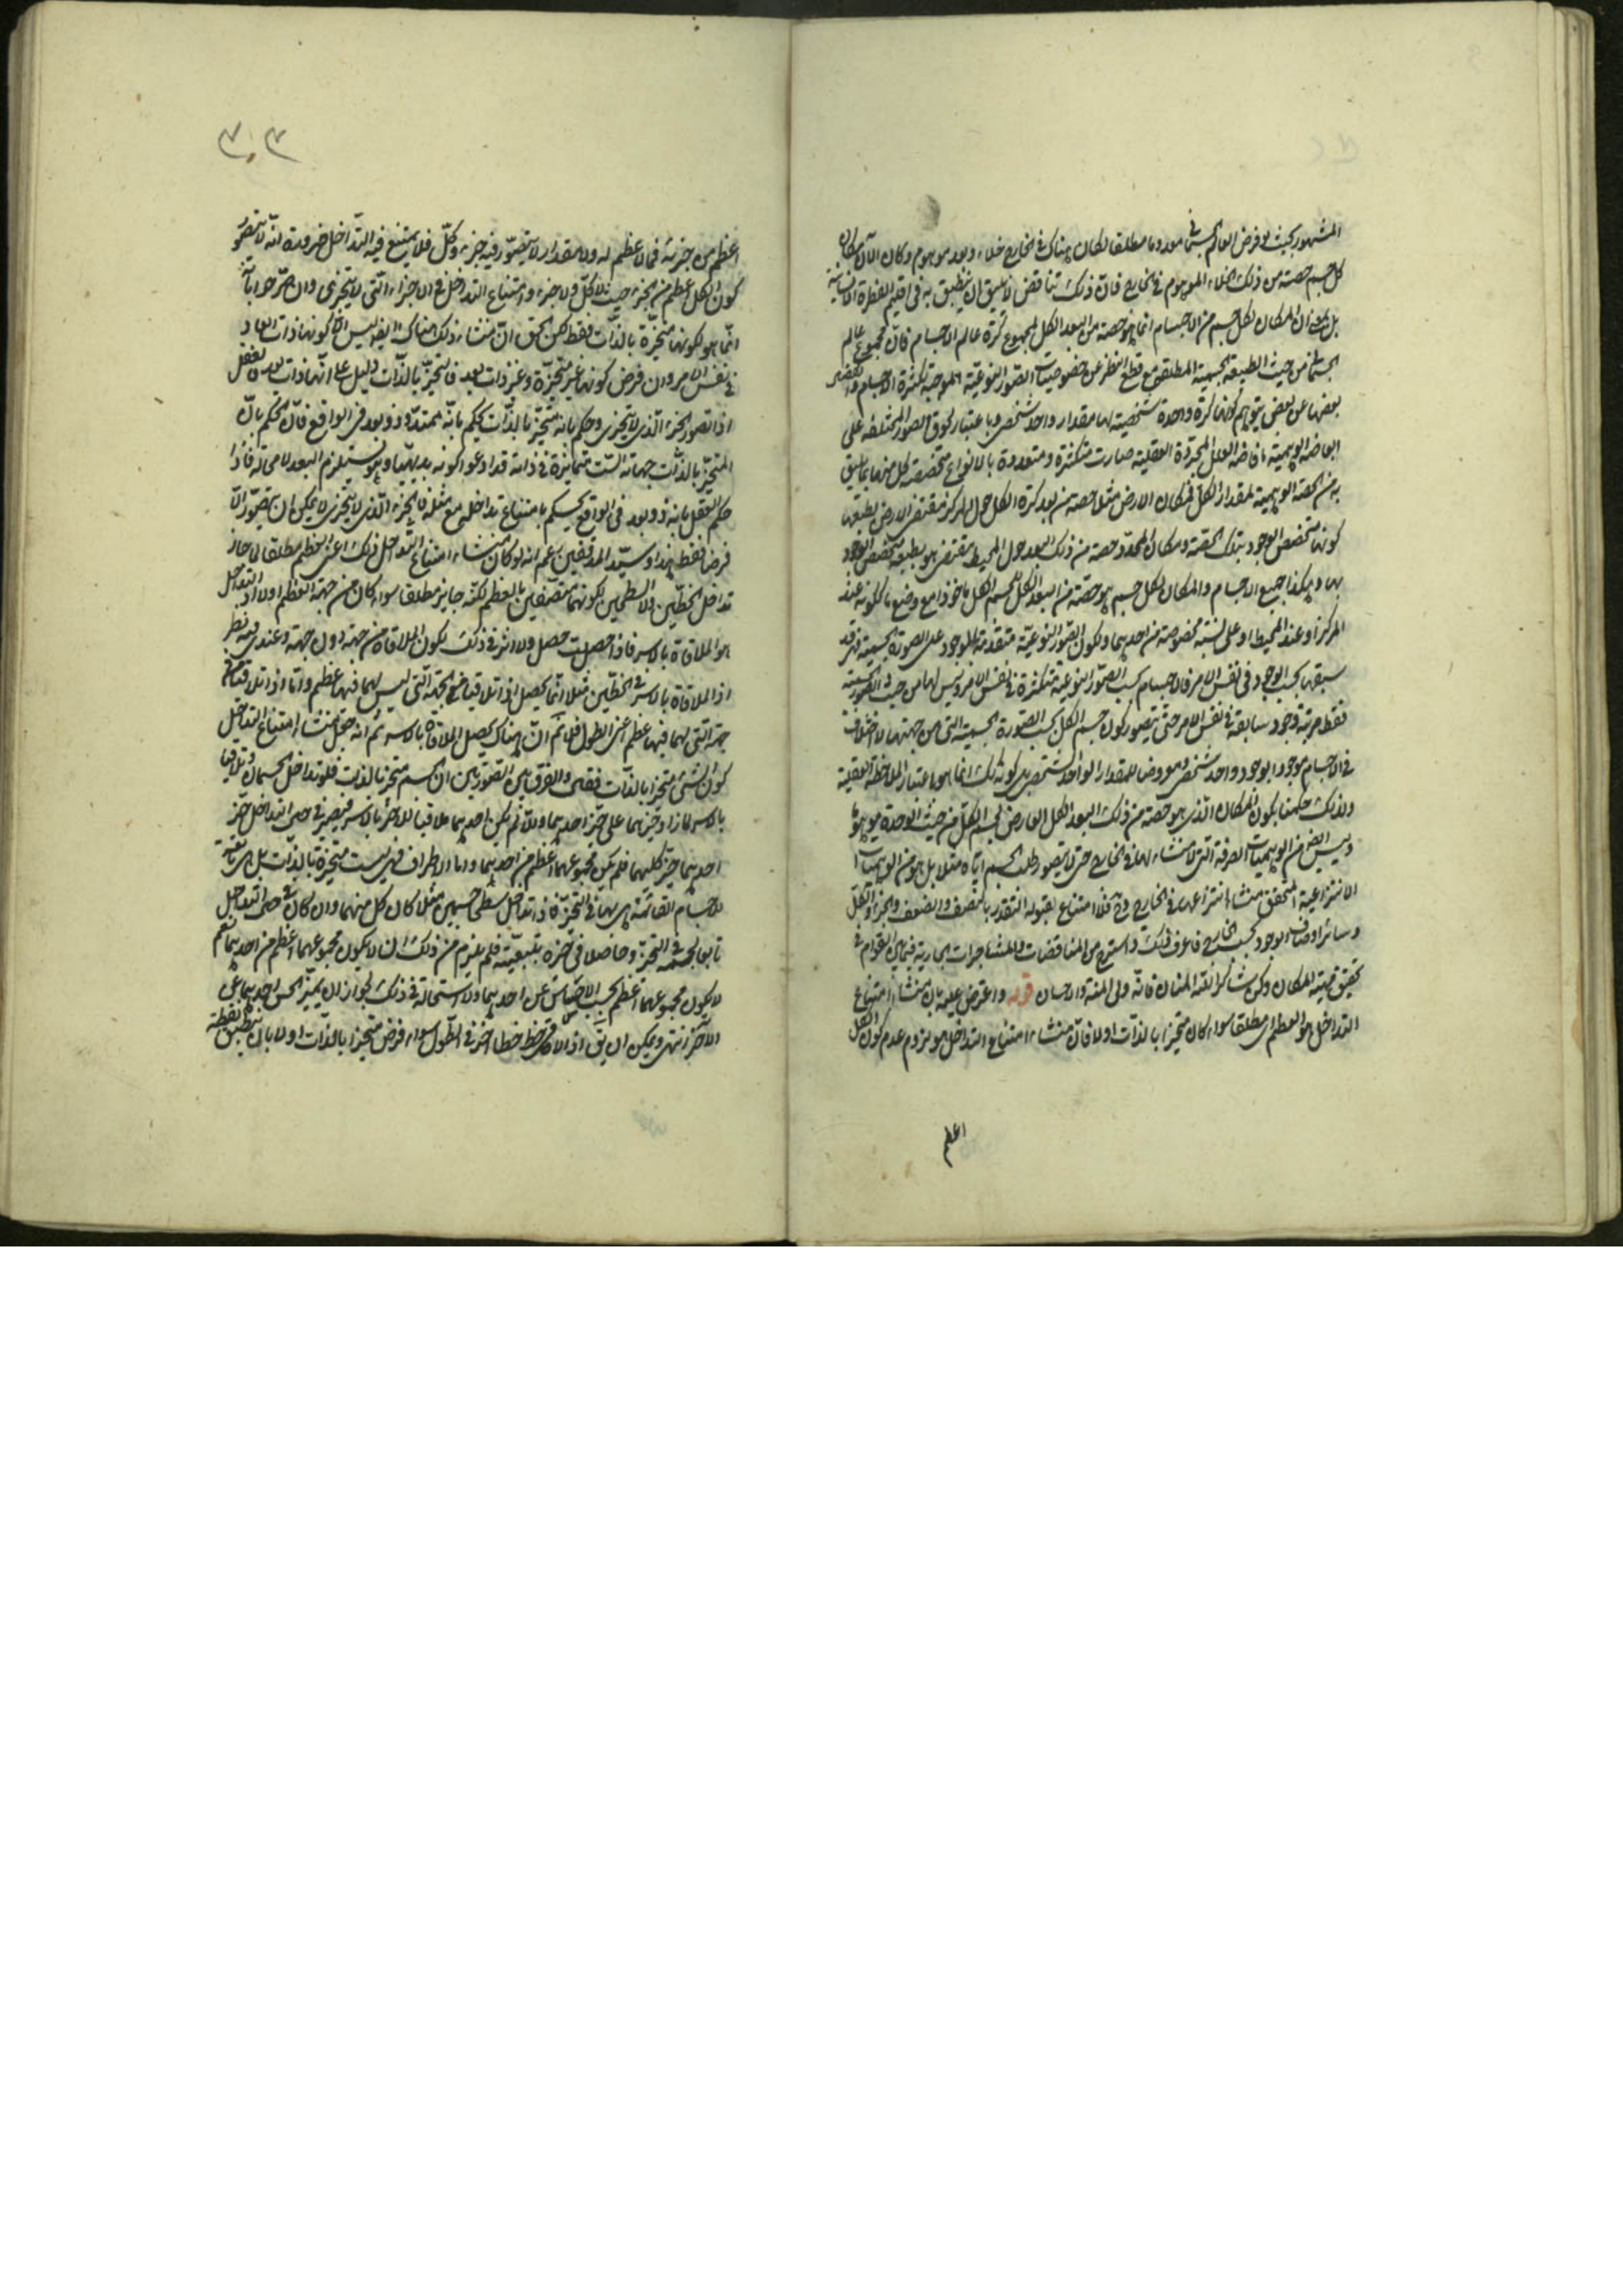 المشهور بحيث لو فرض العالم الجسمانى معدوما مطلقا لكان هناك فى الخارج خلاء وبعد موهوم وكان الآن مكان
كل جسم حصة من ذلك الخلاء الموهوم فى الخارج فان ذلك تناقض لا يليق ان ينطبق به فى اقليم الفطرة الانسانية
بل ان المكان لكل جسم من الاجسام انما هو حصة من البعد الكل لمجموع كرة عالم الاجسام فان مجموع عالم
الجسمانى من حيث الطبيعة الجسمية المطلقة مع قطع النظر عن خصوصيات الصور النوعية الموجبة لكثرة الاجسام و
بعضها عن بعض يتوهم كونها كرة واحدة شخصية لها مقدار واحد شخصى وباعتبار لحوق الصور المختلفة على
ابعاضه الوهمية بافاضة العلل المجردة العقلية صارت متكثرة ومتعددة بالانواع متخصصة كل منها بما يليق
به من الحصة الوهمية لمقدار الكل فمكان الارض مثلا حصة من بعد كرة الكل حول المركز مقتضى الارض بطبعها
كونها متخصص الوجود بتلك الحصة ومكان المحدد حصة من ذلك البعد حول المحيط مقتضى هو بطبعه تخصص الوجود
بها وهكذا جميع الاجسام والمكان لكل جسم هو حصته من البعد الكل لجسم الكل ماخوذا مع وضع ما ككونه عند
المركز او عند المحيط او على نسبة مخصوصة من احدهما ولكون الصور النوعية متقدمة بالوجود على الصورة الجسمية فهى قد
سبقها بحسب الوجود فى نفس الامر فالاجسام بحسب الصور النوعية متكثرة فى نفس الامر وليس لها من حيث الصور الجسمية
فقط مرتبة وجود سابقة فى نفس الامر حتى يتصور كون جسم الكل بحسب الصورة الجسمية التى من جهتها لا اختلاف
فى الاجسام موجودا بوجود واحد شخصى ومعروضا للمقدار الواحد الشخصى بل كونه كذلك انما هو باعتبار الملاحظة العقلية
ولذلك حكمنا بكون المكان الذى هو حصة من ذلك البعد الكل العارض لجسم الكل من حيث الوحدة موهوما
وليس ايضا من الوهميات الصرفة التى لا منشاء لها فى الخارج حتى لا يتصور طلب الجسم اياه مثلا بل هو من الوهميات
الانتزاعية المتحقق منشاء انتزاعها فى الخارج وح فلا امتناع لقبوله التقدر بالنصف والضعف والجزء والكل
وسائر اوصاف الوجود بحسب الخارج فاعرف ذلك واسترح من المناقضات والمشاجرات الجارية فيما بين القوم فى
تحقيق قضية المكان وكن شاكرا لله المنان فانه ولى المنة والاحسان قوله واعترض عليه بان منشاء امتناع
التداخل هو العظم اى مطلقا سواء كان متحيزا بالذات اولا فان منشاء امتناع التداخل هو لزوم عدم كون الكل
اعظم
٣٠٣
اعظم من جزئه فما لا عظم له ولا مقدار لا يتصور فيه جزء وكل فلا يمتنع فيه التداخل ضرورة انه لا يتصور
كون الكل اعظم من الجزء حيث لا كل ولا جزء وامتناع التداخل فى الاجزاء التى لا يتجزى وان
انما هو لكونها متحيزة بالذات فقط لكن الحق ان منشاء ذلك هناك ايضا ليس الا كونها ذات ابعاد
فى نفس الامر وان فرض كونها غير متحيزة وغير ذات بعد فالتحيز بالذات دليل على انها ذات بعد فالعقل
اذا تصور الجزء الذى لا يتجزى وحكم بانه متحيز بالذات يحكم بانه ممتد وذو بعد فى الواقع فان الحكم بان
المتحيز بالذات جهاته الست متمايزة فى ذاته قد ادعوا كونه بديهيا وهو يستلزم البعد لا محالة فاذا
حكم العقل بانه ذو بعد فى الواقع يحكم بامتناع تداخله مع مثله فالجزء الذى لا يتجزى لا يمكن ان يتصور الا
فرضا فقط هذا وسيد المدققين زعم انه لو كان منشاء امتناع التداخل ذلك اعنى العظم مطلقا لما جاز
تداخل الخطين والسطحين لكونهما متصفين بالعظم لكنه جايز مطلقا سواء كان من جهة العظم اولا اذ التداخل
هو الملاقاة بالاسر فاذا حصلت حصل ولا اثر فى ذلك لكون الملاقاة من جهة دون جهة وعندى فيه نظر
اذ الملاقاة بالاسر فى الخطين مثلا انما يحصل اذا تلاقيا فى الجهة التى ليس لهما فيها عظم واما اذا تلاقيا فى
جهة التى لهما فيها عظم اعنى الطول فلا نم ان هناك يحصل الملاقاة بالاسر ثم انه جعل منشاء امتناع التداخل
كون الشئ متحيزا بالذات فقط والفرق بين الصورتين ان الجسم متحيز بالذات فلو تداخل الجسمان وتلاقيا
بالاسر لما زاد حيزهما على حيز احدهما والا لم يكن احدهما ملاقيا للاخر بالاسر فيصير فى حين التداخل حيز
احدهما حيز كليهما فلم يكن مجموعهما اعظم من احدهما واما الاطراف فهى ليست متحيزة بالذات بل هى تابعة
للاجسام القائمة هى بها فى التحيز فاذا تداخل سطحى جسمين مثلا كان كل منهما وان كان فى حين التداخل
تابعا لجسمه فى التحيز وحاصلا فى حيزه بتبعيته فلم يلزم من ذلك ان لا يكون مجموعهما اعظم من احدهما نعم
لا يكون مجموعهما اعظم بحسب الاحساس عن احدهما ولا استحالة فى ذلك لجواز ان لا يميز الحس احدهما عن
الآخر انتهى ويمكن ان يق اذا لاقى خط خطا اخر فى الطول سواء فرض متحيزا بالذات اولا بان ينطبق نقطة